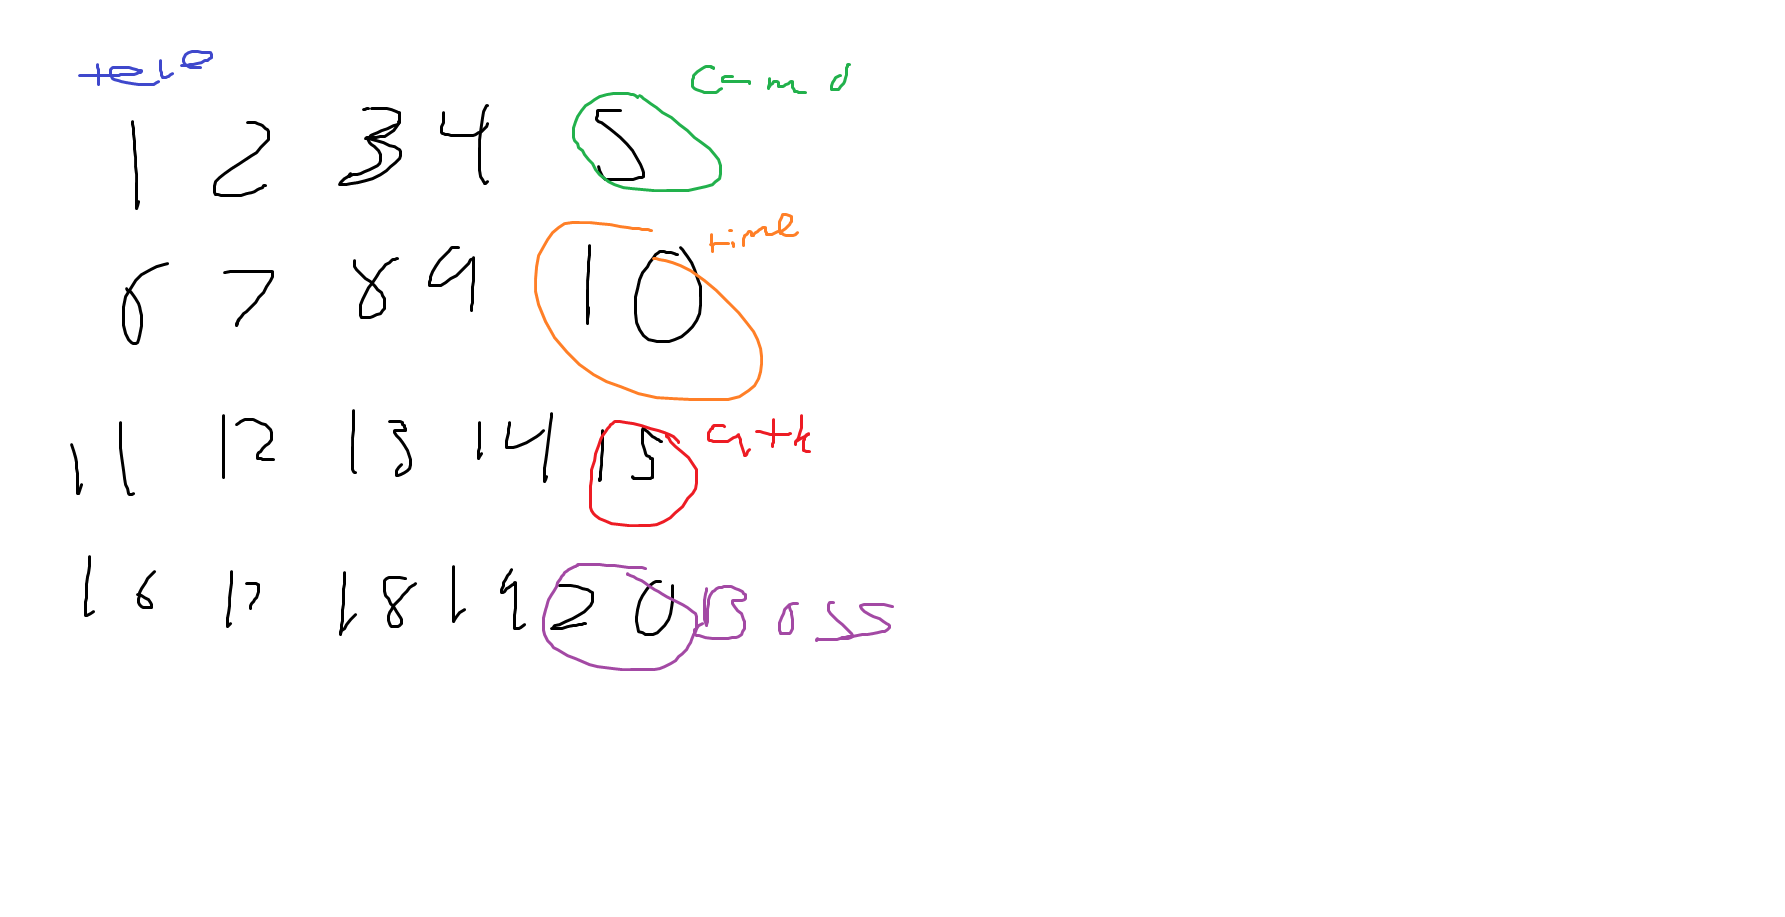 tele
1 2 3 4 5 c-m d
6 7 8 9 10 time
11 12 13 14 15 atk
16 17 18 19 20 Boss